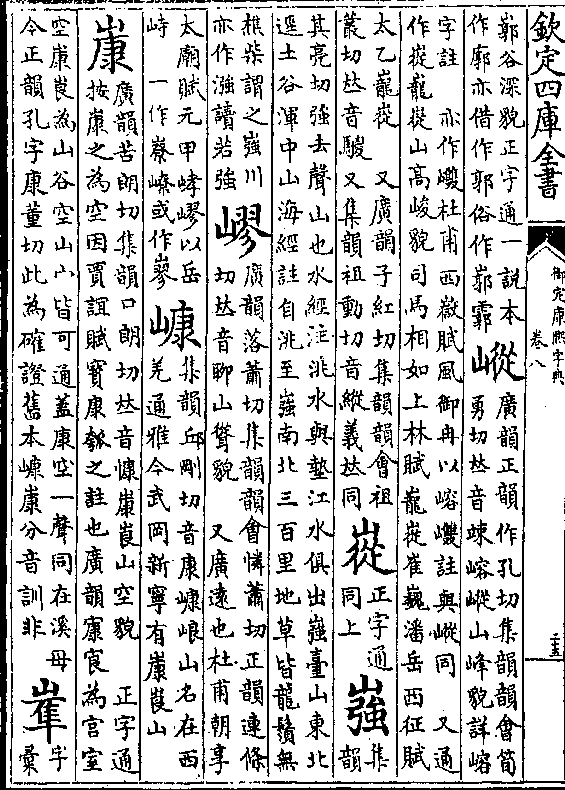 欽定四庫全書
御定康熙字典
卷八
二十五
嶎谷深貌正字通一說本
作廓亦借作郭俗作嶎霩
嵷
廣韻正韻作孔切集韻韻會筍
勇切𠀤音竦嵱嵷山峰貌詳嵱
字註 亦作㠠杜甫西嶽賦風御冉以嵱㠠註與嵷同 又通
作嵸巃嵸山高峻貌司馬相如上林賦巃嵸崔巍潘岳西征賦
太乙巃嵸 又廣韻子紅切集韻韻會祖
叢切𠀤音騣 又集韻祖動切音縱義𠀤同
嵸
正字通
同上
嵹
集
韻
其亮切強去聲山也水經注洮水與墊江水俱出嵹臺山東北
逕土谷渾中山海經註自洮至嵹南北三百里地草皆龍鬚無
樵柴謂之嵹川
亦作漒讀若強
嵺
廣韻落蕭切集韻韻會憐蕭切正韻連條
切𠀤音聊山聳貌 又廣遠也杜甫朝享
太廟賦元甲崒嵺以岳
峙 一作嶚嶛或作嵺
嵻
集韻丘剛切音康嵻崀山名在西
羌通雅今武岡新寧有𡻚崀山
𡻚
廣韻苦朗切集韻口朗切𠀤音慷𡻚崀山空貌 正字通
按康之為空因賈誼賦寶康瓠之註也廣韻㝩㝗為宮室
空康崀為山谷空山宀皆可通蓋康空一聲同在溪母
今正韻孔字康董切此為確證舊本嵻𡻚分音訓非
嶉
字
彙